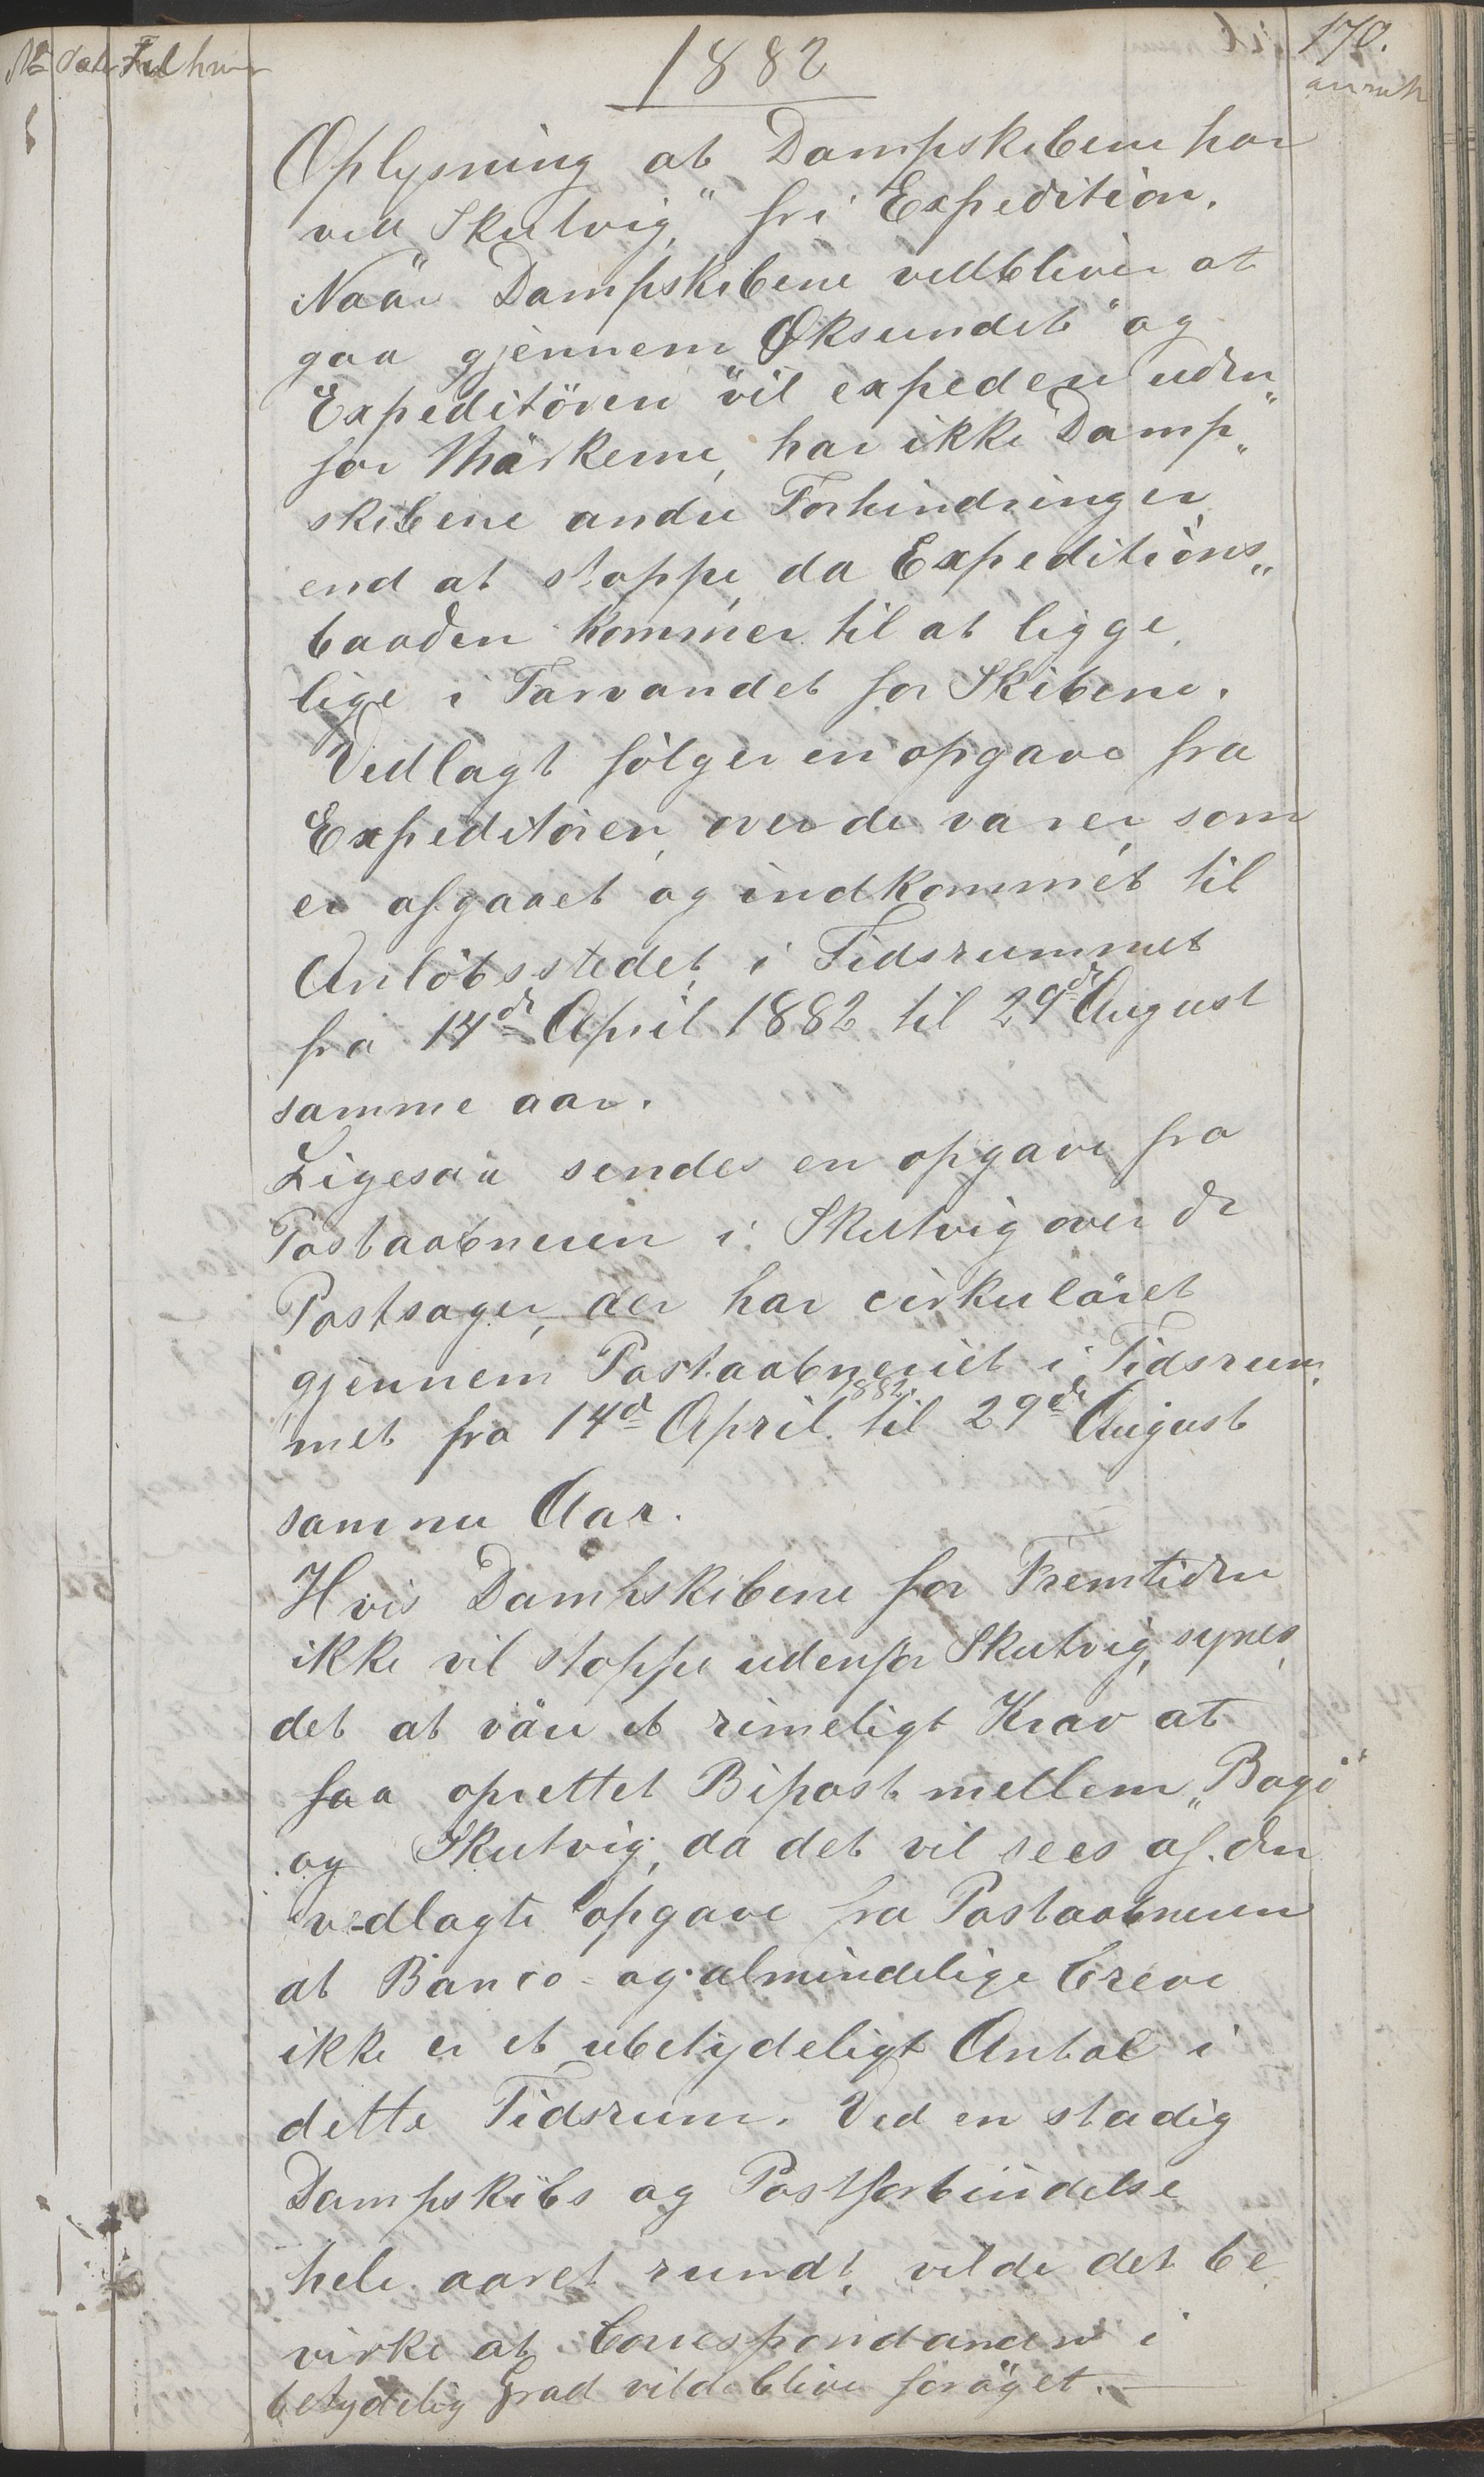 No dato Til hvem
1882
170.
anmk
Oplysning at Dampskibene har
ved Skutvig" fri Expedition.
Naar Dampskibene vedbliver at
gaa gjennem Øksundet" og
Expeditören vil expedere uden„
for Märkerne, har ikke Damp„
skibene andre Forhindringer
end at stoppe, da Expeditions„
baaden kommer til at ligge
lige i Farvandet for Skibene.
Vedlagt fölger en opgave fra
Expeditören, over de varer som
er afgaaet og indkommet til
Anlöbsstedet, i Tidsrummet
fra 14de April 1882 til 29de August
samme aar.
Ligesaa sendes en opgave fra
Postaabneren i Skutvig over de
Postsager, der har cirkuläret
gjennem Postaabneriet i Tidsrum„
met fra 14d April 1882. til 29de August
samme Aar.
Hvis Dampskibene for Fremtiden
ikke vil stoppe udenfor Skutvig, synes
det at väre et rimeligt Krav at
faa oprettet Bipost mellem „Bogö"
og Skutvig, da det vil sees af den
vedlagte opgave fra Postaabneren
at Banco- og almindelige breve
ikke er et ubetydeligt Antal i
dette Tidsrum. Ved en stadig
Dampskibs og Postforbindelse
hele aaret rundt, vilde det be
virke at Correspondancen i
betydelig Grad vilde blive foröget.